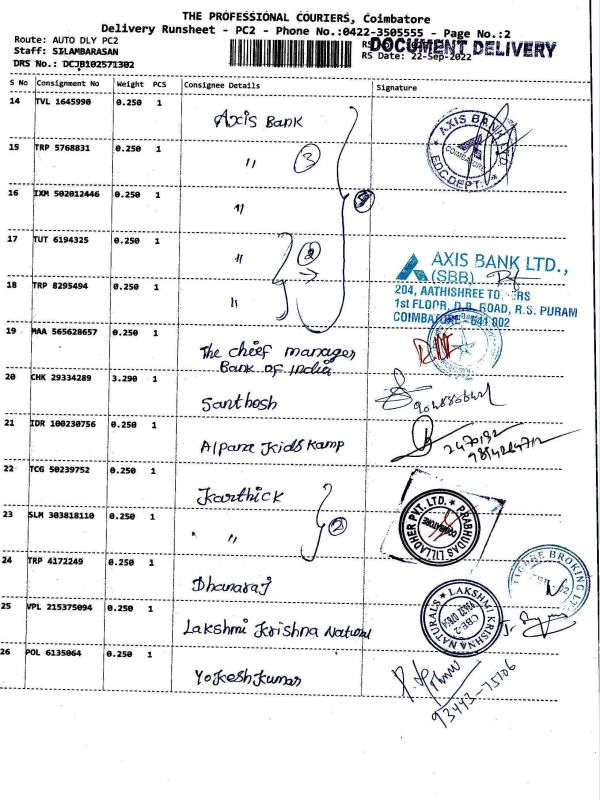 THE PROFESSIONAL COURIERS, Coimbatore
Delivery Runsheet - PC2 - Phone No.:0422-3505555 - Page No.:2
Route: AUTO DLY PC2
DOCUMENT DELIVERY
Staff: SILAMBARASAN
RS Date: 22-Sep-2022
DRS No.: DCJB102571302
S No Consignment No Weight PCS Consignee Details Signature
14 TVL 1645990 0.250 1 Axis Bank
AXIS BANK LTD.
COIMBATORE
EDC.DEPT.
15 TRP 5768831 0.250 1 " 3
16 IXM 502012446 0.250 1 "
17 TUT 6194325 0.250 1 " 2
AXIS BANK LTD.,
(SBB)
18 TRP 8295494 0.250 1 "
204, AATHISHREE TOWERS
1st FLOOR, D.B. ROAD, R.S. PURAM
COIMBATORE - 641 002
19 MAA 565628657 0.250 1 The chief manager
Bank of India
20 CHK 29334289 3.290 1 Santhosh
21 IDR 100230756 0.250 1 Alpana Kids Kamp
22 TCG 50239752 0.250 1 Karthick
PRABHUDAS LILLADHER PVT. LTD.
COIMBATORE
23 SLM 303818110 0.250 1 " " 2
24 TRP 4172249 0.250 1 Dhanaraj
BROKING LTD
25 VPL 215375094 0.250 1 Lakshmi Krishna Natural
LAKSHMI KRISHNA NATURALS
CBE-2
26 POL 6135064 0.250 1 Yokesh Kumar
93443-75106